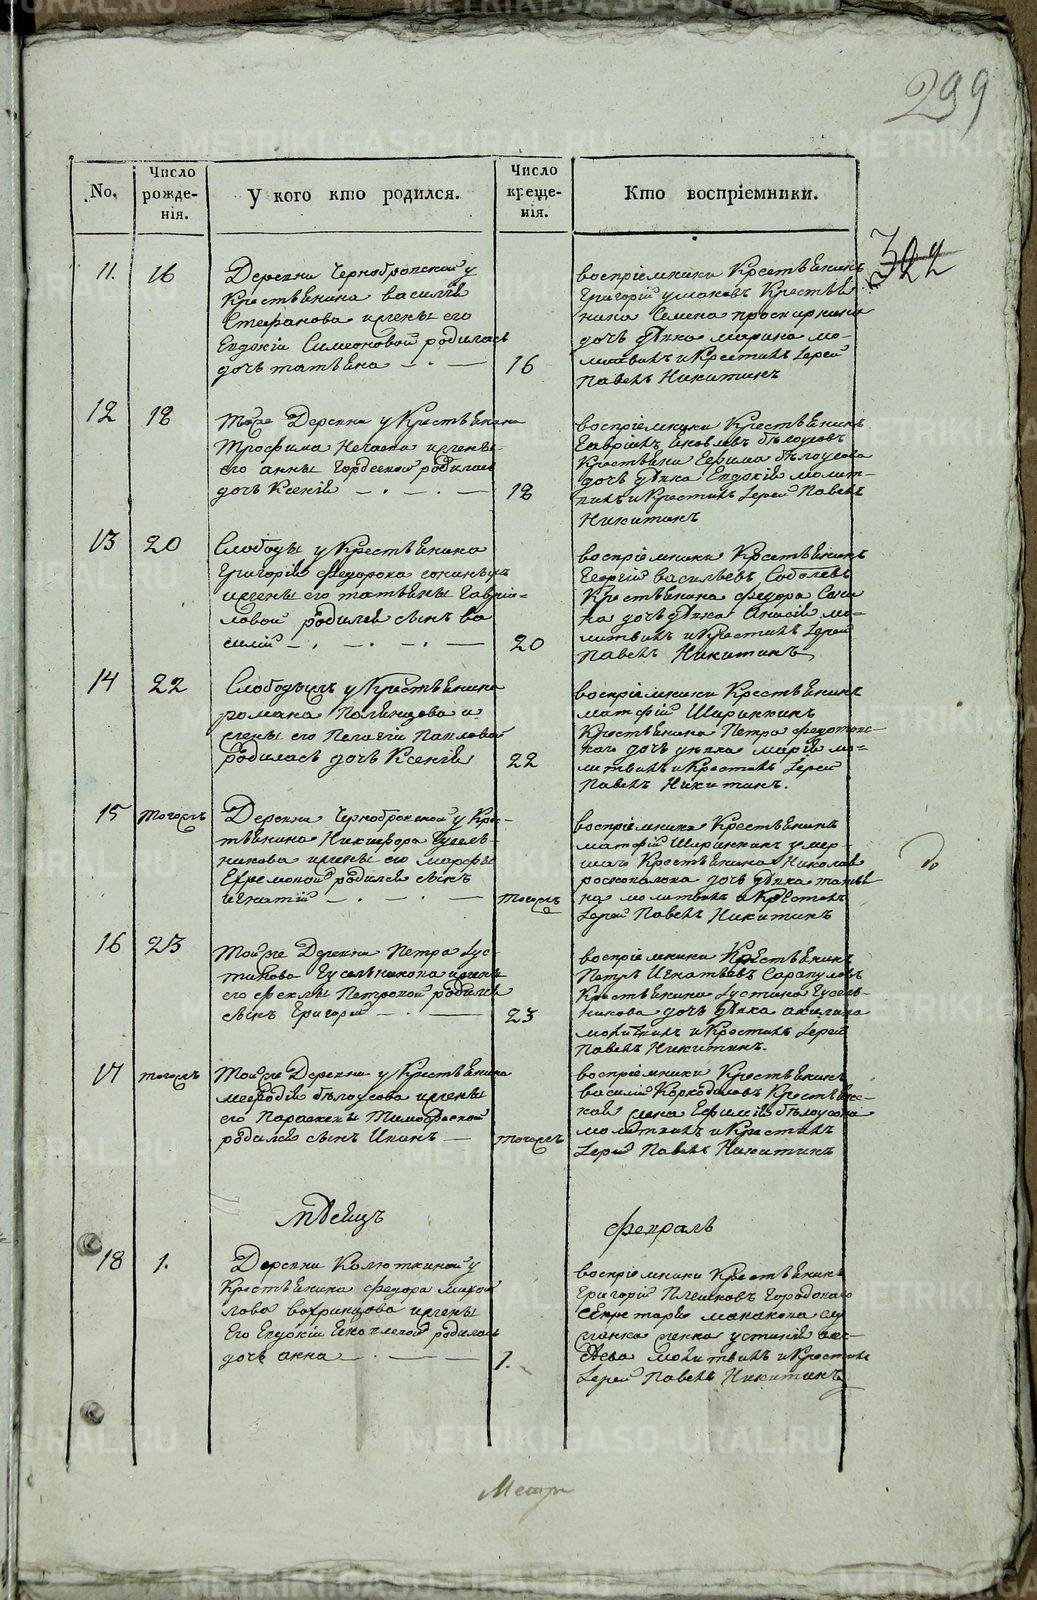 299
No.
Число рожде-нія.
У кого кто родился.
Число креще-нія.
Кто воспріемники.
322
11.
16
Деревни Чернобровской у
Крестьянина василія
Стефанова и жены его
Евдокіи Симеоновой родилась
дочь татьяна
16
воспріемники Крестьянинъ
Григорій ушаковъ Крестьяни-
нина Семена
дочь девка марина мо-
литвилъ и Крестилъ Іерей
Павелъ Никитинъ
12
18
Тоже Деревни у Крестьянина
Трофима Нечаева и жены
его анны Гордеевой родилась
дочь Ксенія
18
воспріемники Крестьянинъ
Гавріилъ яковлевъ бѣлоусовъ
Крестьянина Ефима бѣлоусова
дочь дѣвка Евдокія молит-
вилъ и Крестилъ Іерей Павелъ
Никитинъ
13
20
Слободы у Крестьянина
Григорія федорова
и жены его татьяны Гаврі-
ловой родился сынъ ва
силій
20
воспріемники Крестьянинъ
Георгій васильевъ Соболевъ
Крестьянина федора
дочь дѣвка Анисія мо-
литвилъ и Крестилъ Іерей
Павелъ Никитинъ
14
22
Слободы у Крестьянина
романа и
жены его Пелагіи Павловой
родилась дочь Ксенія
22
воспріемники Крестьянинъ
матфій Ширинкинъ
Крестьянина Петра
дочь дѣвка марія мо-
литвилъ и Крестилъ Іерей
Павелъ Никитинъ.
15
тогожъ
Деревни Чернобровской у Крес-
тьянина Никифора Гусель-
никова и жены его марфы
Ефремовой родился сынъ
игнатій
тогожъ
воспріемники Крестьянинъ
матфій Ширинкинъ умер-
шаго Крестьянина Николая
дочь дѣвка татья
на молитвилъ и Крестилъ
Іерей Павелъ Никитинъ
16
23
Тойже Деревни Петра Іус-
тинова Гусельникова и жены
его феклы Петровой родился
сынъ Григорій
23
воспріемники Крестьянинъ
Петръ Игнатьевъ Сарапуловъ
Крестьянина Іустина Гусель-
никова дочь дѣвка акилина
молитвилъ и Крестилъ Іерей
Павелъ Никитинъ.
17
тогожъ
Тойже Деревни у Крестьянина
мефодія бѣлоусова и жены
его Параскевы Тимофеевой
родился сынъ Иванъ
тогожъ
воспріемники Крестьянинъ
василій Коркодиновъ Крестьянс-
кая жена Ефимія бѣлоусова
молитвилъ и Крестилъ
Іерей Павелъ Никитинъ
мѣсяцъ
февраль
18
1.
Деревни Колюткиной у
Крестьянина федора михай
лова вохринцова и жены
Его Евдокіи яковлевой родилась
дочь анна
1.
воспріемники Крестьянинъ
Григорій Плешковъ Городоваго
секретаря
женка устинія
молитвилъ и Крестилъ
Іерей Павелъ Никитинъ
Метри
METRIKI.GASO-URAL.RU